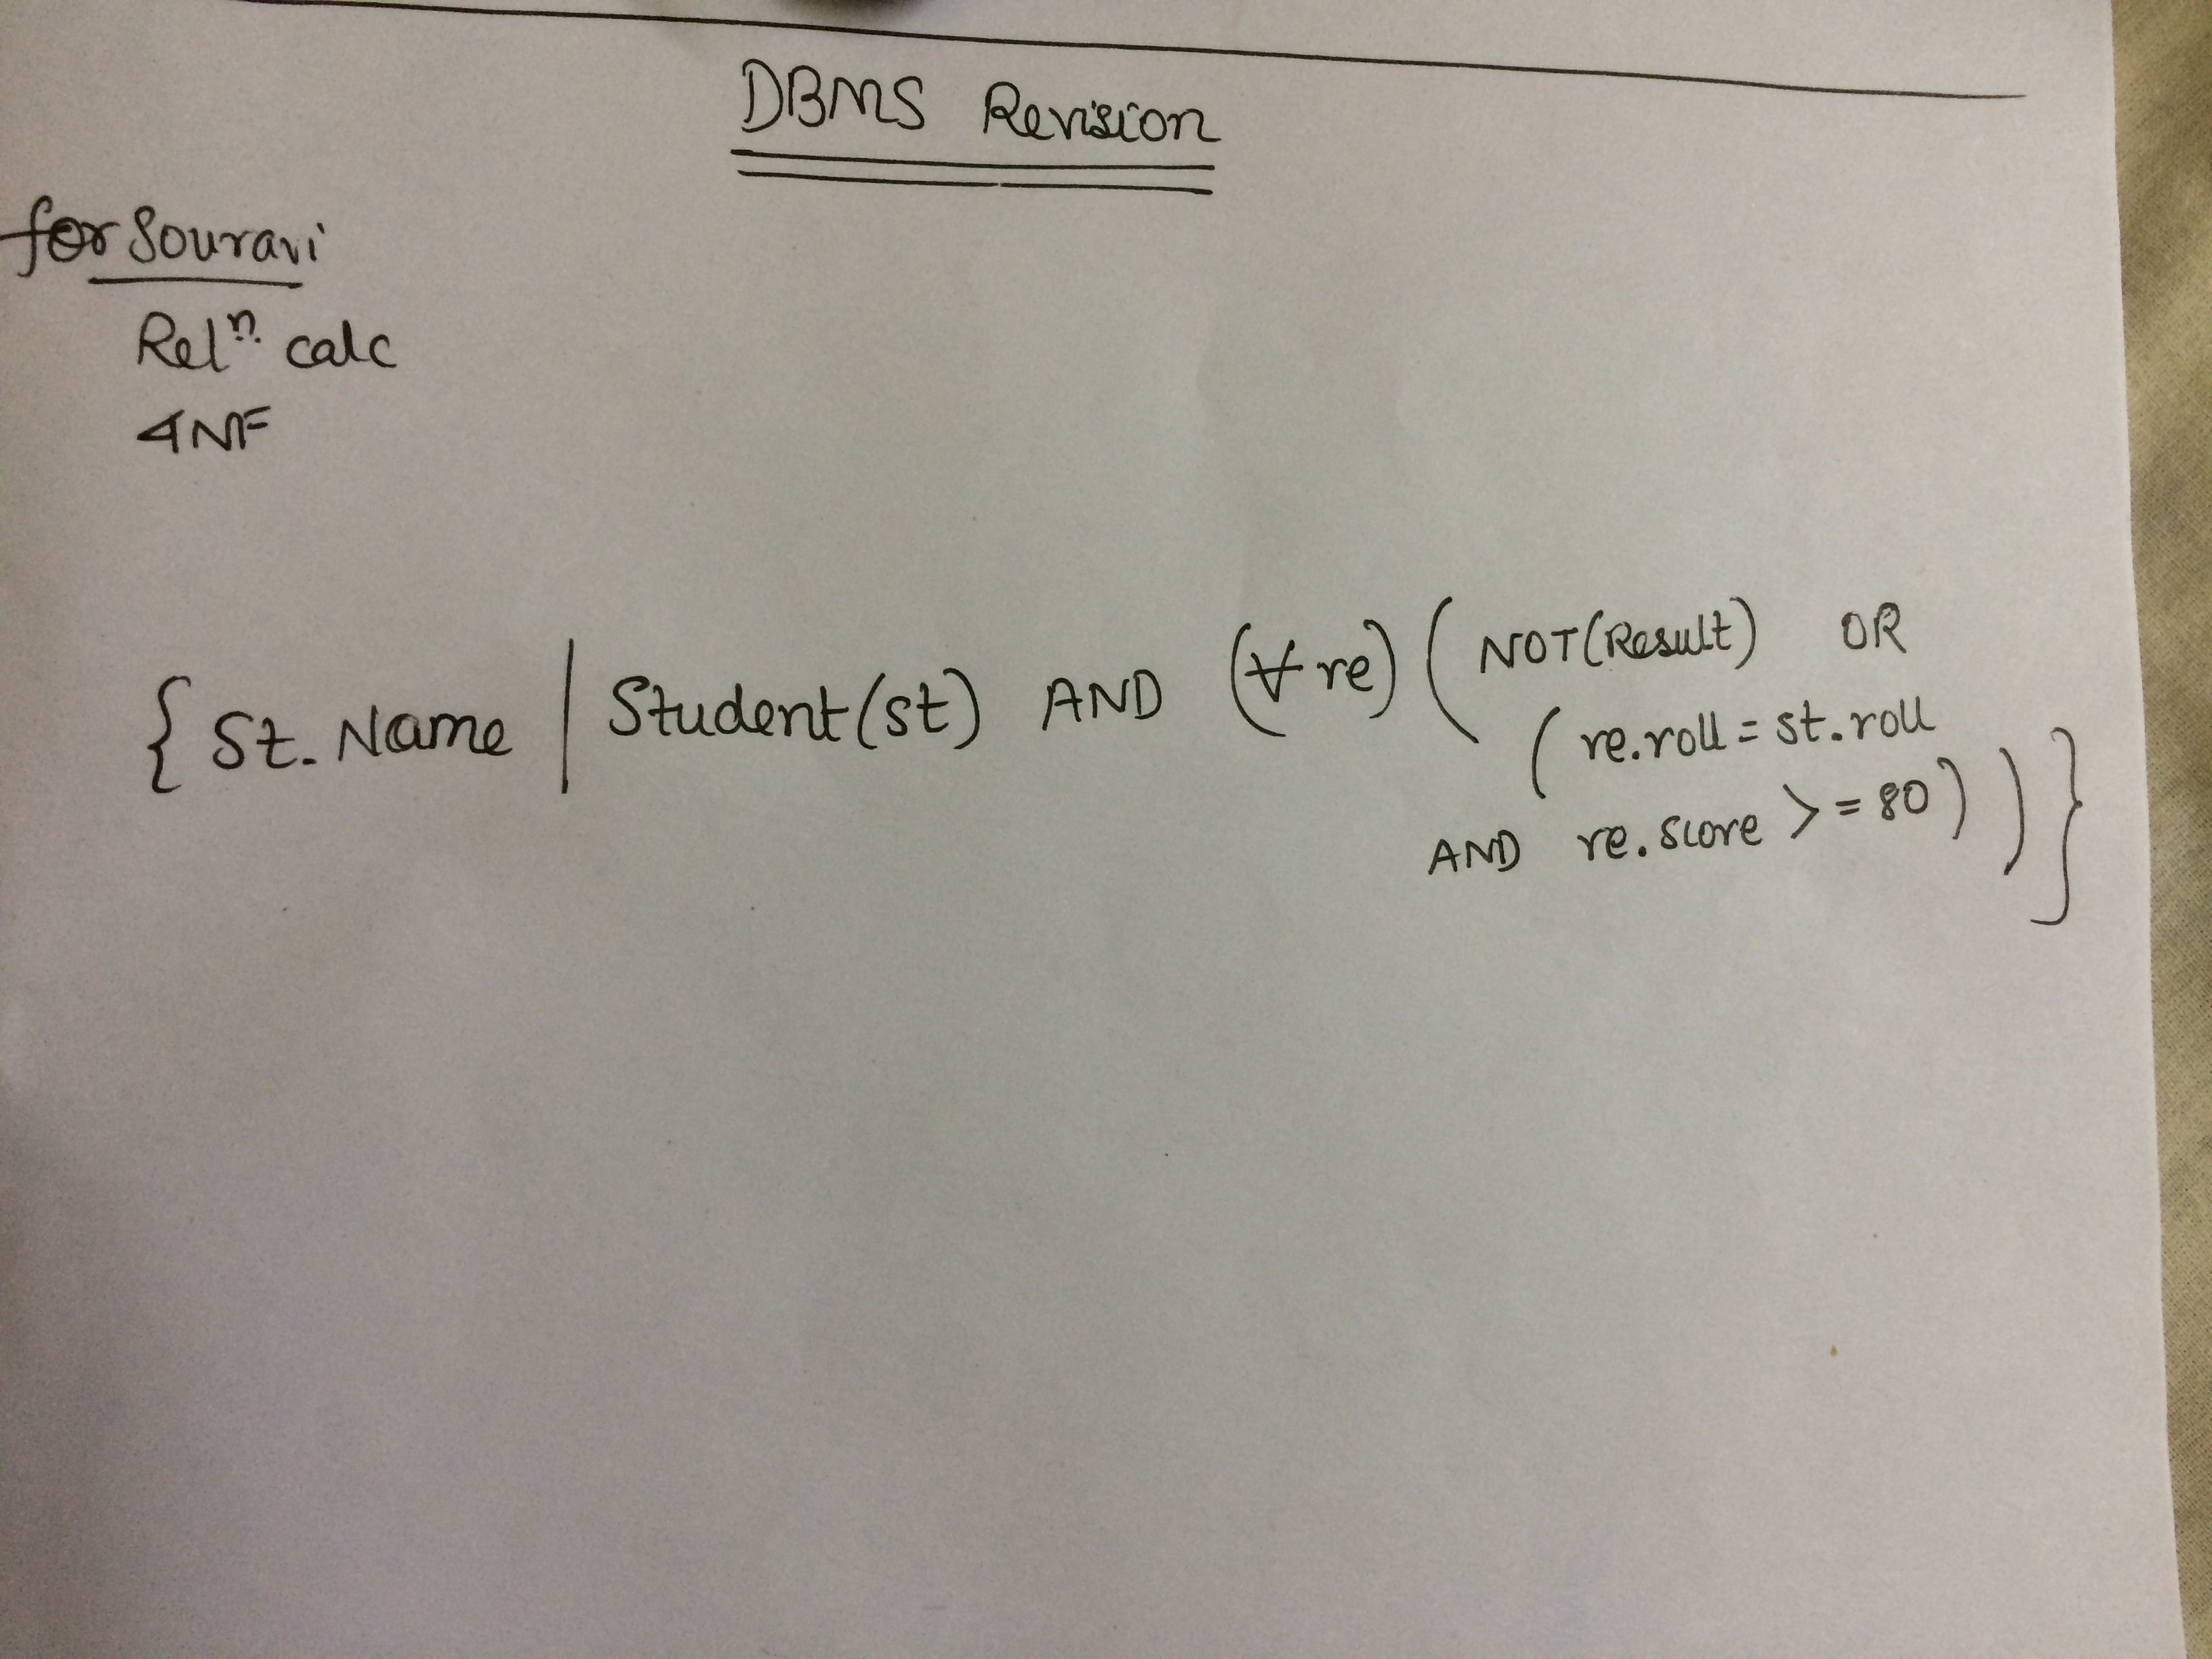 DBMS Revision
for Sourravi
Relⁿ. calc
4NF
{ St. Name | Student(st) AND (∀ re) ( NOT(Result) OR
( re.roll = st.roll
AND re.score >= 80 ) ) }